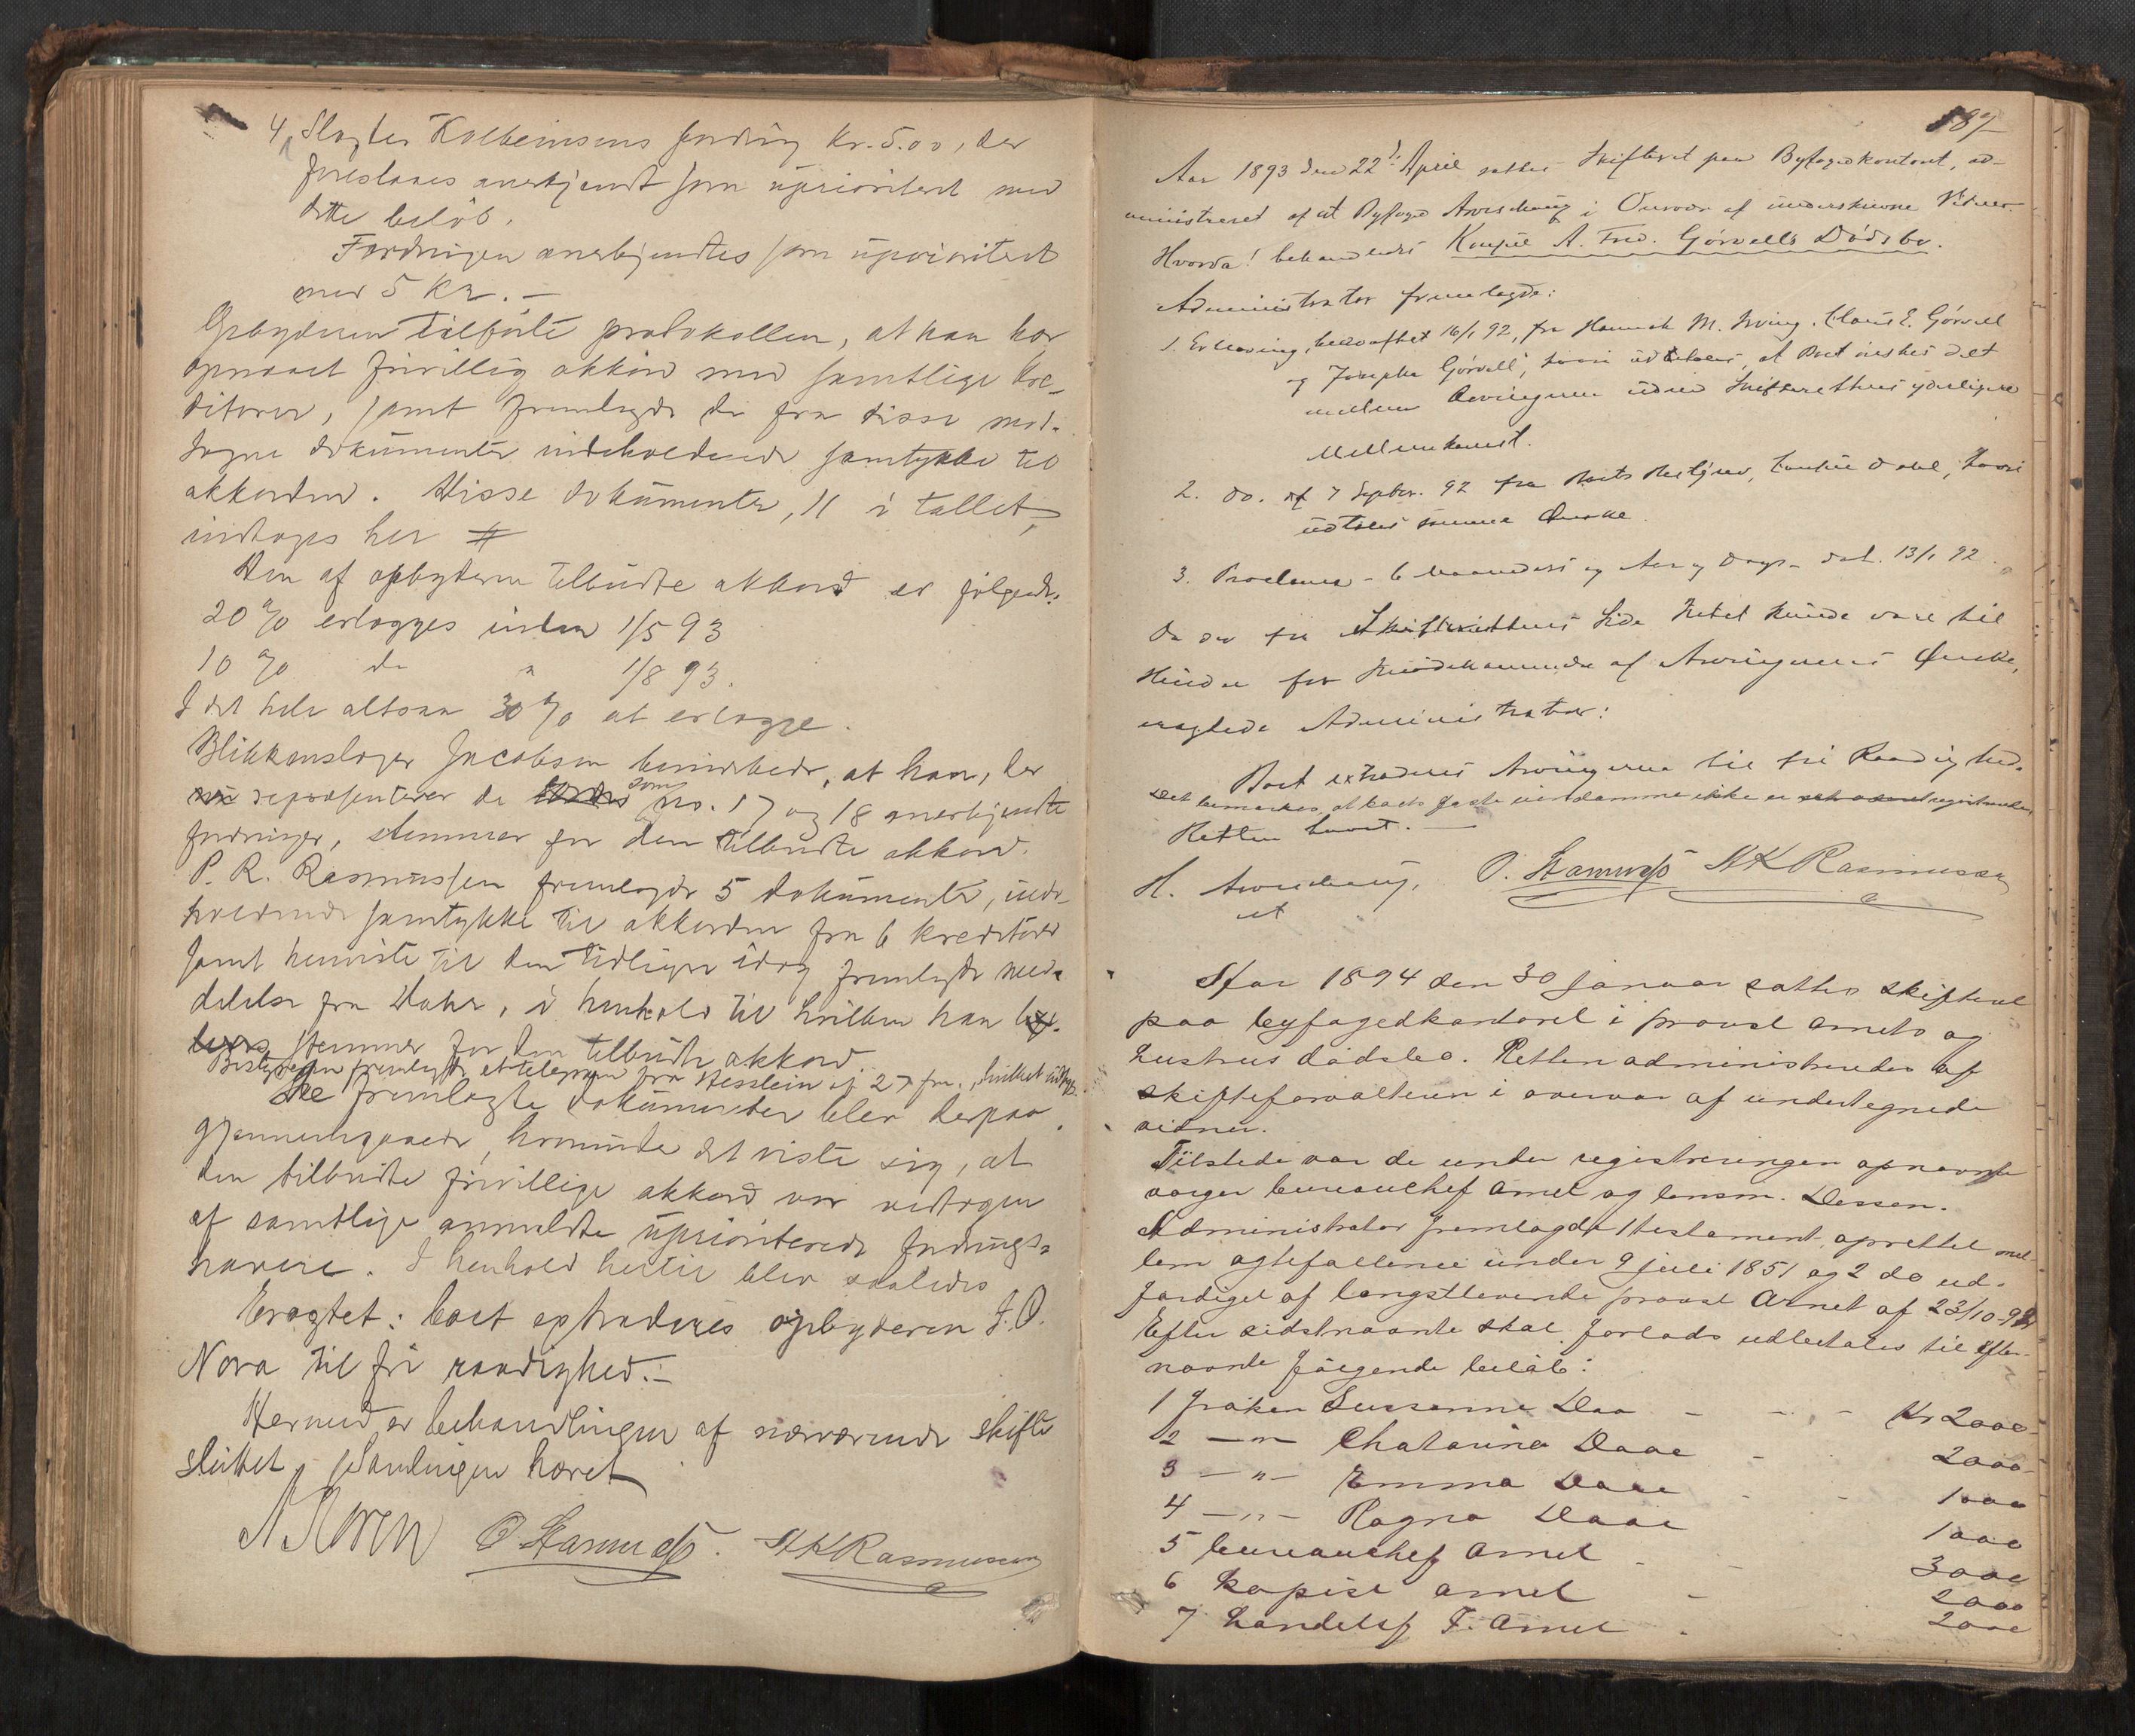 4, Slagter Kolbeinsens fordring kr. 5.00, der
foreslaaes anerkjendt som uprioritert med
dette beløb.
Fordringen anerkjendtes som uprioritert
med 5 kr. —
Opbyderen tilførte protokollen, at han har
opnaaet frivillig akkord med samtlige kre-
ditorer, samt fremlagde de fra disse mod-
tagne dokumenter indeholdende samtykke til
akkorden. Disse dokumenter, 11 i tallet,
indtages her #
Den af opbyderen tilbudte akkord er følgende:
20 % erlægges inden 1/5 93
10 % do " 1/8 93.
I det hele altsaa 30 % at erlægge.
Blikkenslager Jacobsen bemærkede, at han, der
repræsenterer de som no. 17 og 18 anerkjendte
fordringer, stemmer for den tilbudte akkord.
P. R. Rasmussen fremlagde 5 dokumenter, inde-
holdende samtykke til akkorden fra 6 kreditorer
samt henviste til den tidligere idag fremlagte med-
delelse fra Dahr, i henhold til hvilken han
stemmer for den tilbudte akkord.
Bestyreren fremlagde et telegram fra Hesslein af 27 , hvilket indtages
De fremlagte dokumenter blev derpaa
gjennemgaaede, hvorunder det viste sig, at
den tilbudte frivillige akkord var vedtagen
af samtlige anmeldte uprioriterede fordrings-
havere. I henhold hertil blev saaledes
Eragtet: boet extraderes opbyderen J. O.
Nora til fri raadighed. —
Hermed er behandlingen af nærværende skifte
sluttet. Samlingen hævet
O. Hammerss. N K Rasmussen
187
Aar 1893 den 22d: April sattes Skifteret paa Byfogedkontoret, ad-
ministreret af cst Byfoged Arveschoug i Overvær af underskrevne Vidner.
Hvorda! behandledes Konsul A. Fred. Gørvells Dødsbo.
Administrator fremlagde:
1. Erklæring, bekræftet 16/1 92, fra Hannah M. Irving, Claus E. Gørvell
og Josepha Gørvell, hvori udtales, at Boet ønskes delt
mellem Arvingerne uden Skifterettens yderligere
Mellemkomst.
2. Do. af 7 Septbr. 92 fra Boets Bestyrer, Konsul Dahl, hvori
udtales samme Ønske.
3. Proclama – 6 Maaneders og Aar og Dags – dat. 13/1 92.
Da der fra Skifterettens Side Intet kunde være til
Hinder for Imødekommelse af Arvingernes Ønske,
eragtede Administrator:
Boet extraderes Arvingerne til fri Raadighed.
Det bemærkes, at boets faste eiendomme ikke er registrerede.
Retten hævet. —
H. Arveschoug, O. Hammerss N K Rasmussen
cst
Aar 1894 den 30 januar sattes skifteret
paa byfogedkontoret i provst Arnets og
hustrus dødsbo. Retten administreredes af
skifteforvalteren i overvær af undertegnede
vidner.
Tilstede var de under registreringen opnævnte
værger bureauchef Arnet og lensm. Dessen.
Administrator fremlagde 1 testament, oprettet mel-
lem ægtefællerne under 9 juli 1851 og 2 do ud-
færdiget af længstlevende provst Arnet af 23/10-92
Efter sidstnævnte skal forlods udbetales til efter-
nævnte følgende beløb:
1 frøken Sussanne Daa - - - Kr 2000-
2 —"— Chatarina Daae - 2000-
3 —"— Emma Daae - - 1000
4 —"— Ragna Daae 1000
5 bureauchef Arnet - - 3000
6 kopist Arnet - 2000
7 handelsf F. Arnet - 2000